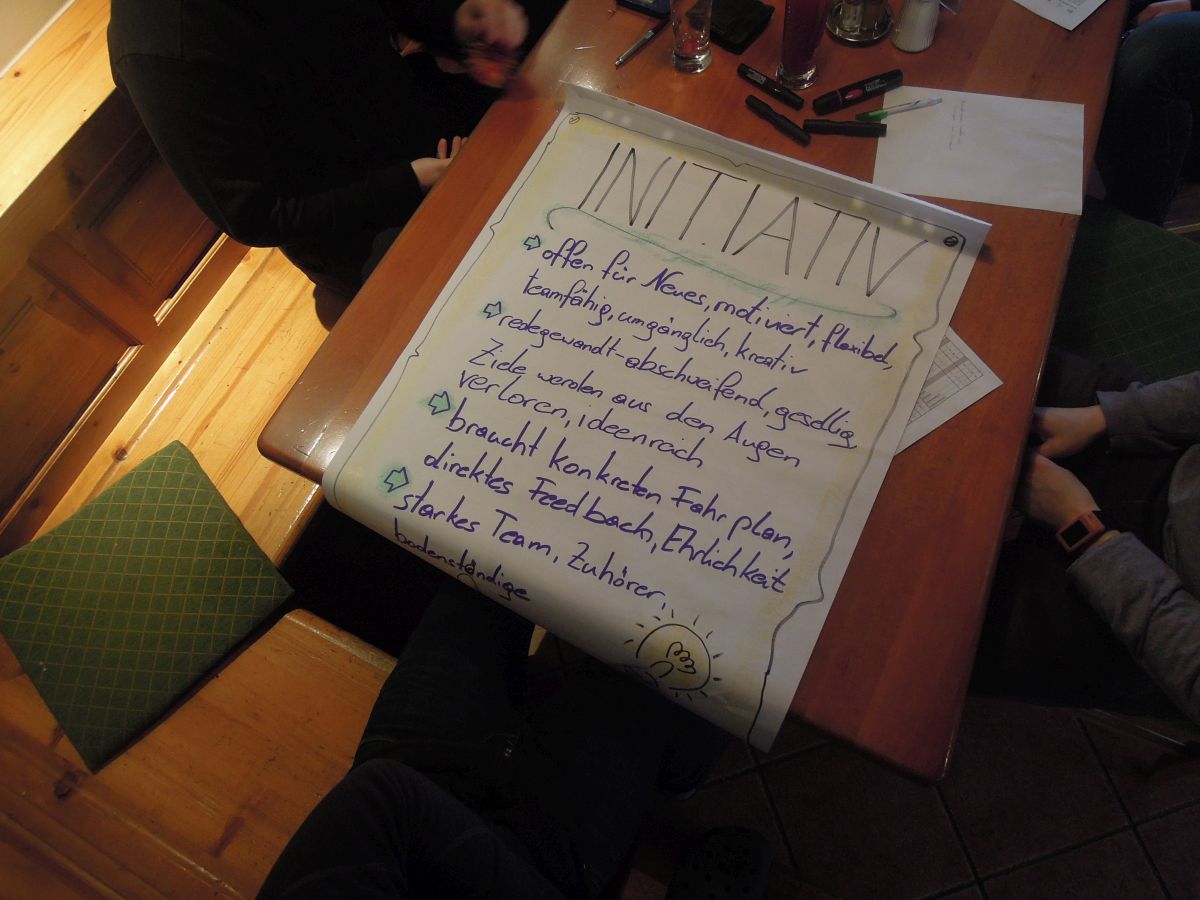 INITIATIV
offen für Neues, motiviert, flexibel,
teamfähig, umgänglich, kreativ
redegewandt-abschweifend, gesellig,
Ziele werden aus den Augen
verloren, ideenreich
braucht konkreten Fahrplan,
direktes Feedback, Ehrlichkeit
starkes Team, Zuhörer,
bodenständige